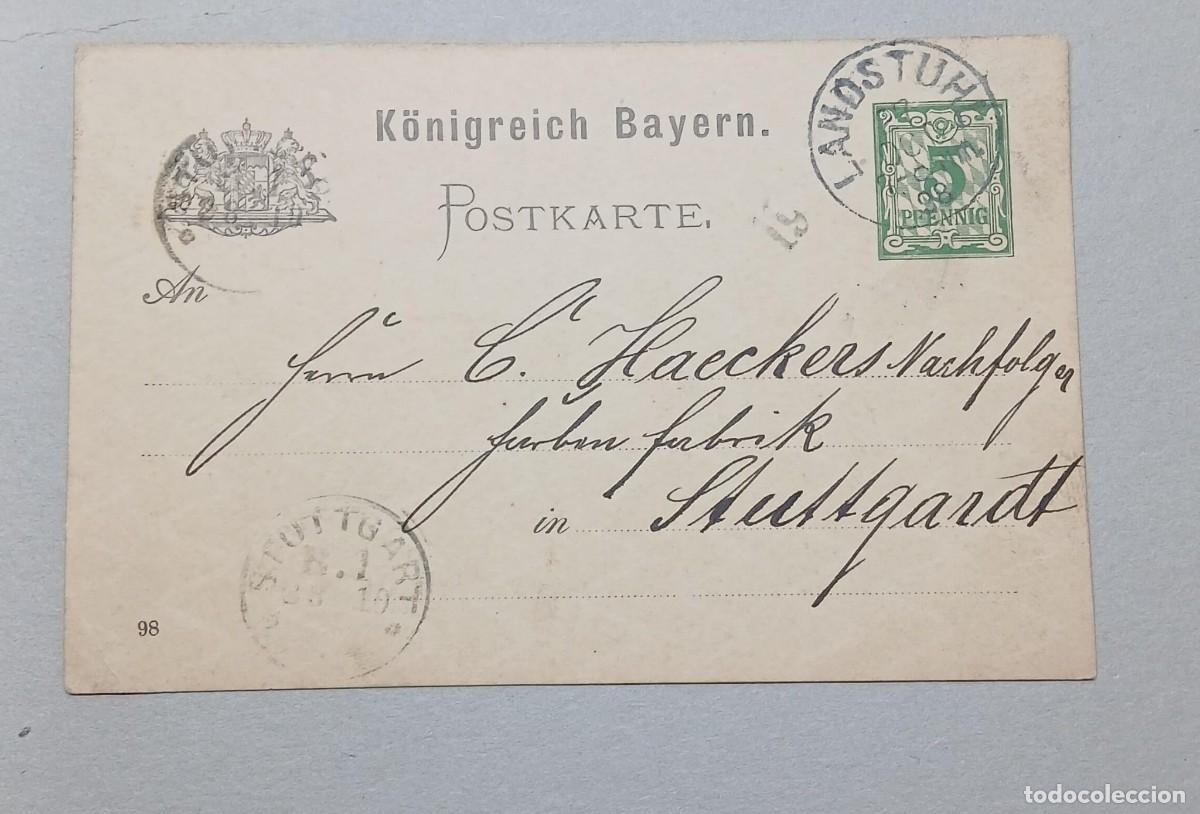 Königreich Bayern.
POSTKARTE.
LANDSTUHL
98
5
PFENNIG
An
Herrn C. Haeckers Nachfolger
Farbenfabrik
in Stuttgardt
STUTTGART
98
todocoleccion